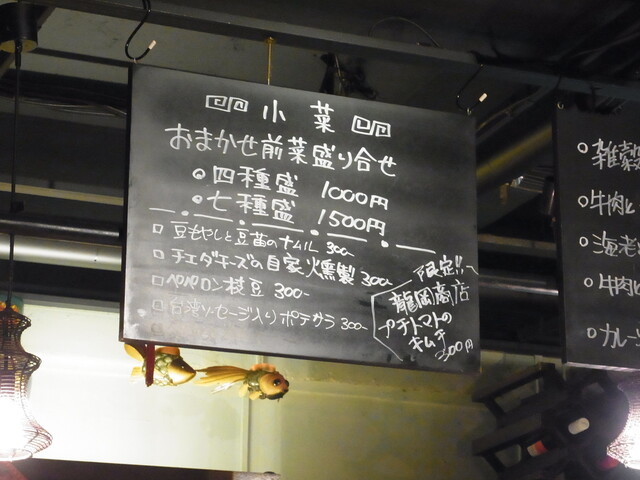 小菜
おまかせ前菜盛り合せ
四種盛 1000円
七種盛 1500円
豆もやしと豆苗のナムル 300-
チェダチーズの自家燻製 300-
ペペロン枝豆 300-
台湾ソーセージ入りポテサラ 300-
限定!!
龍岡商店
プチトマトの
キムチ
200円
雑穀
牛肉と
海老
牛肉と
カレー